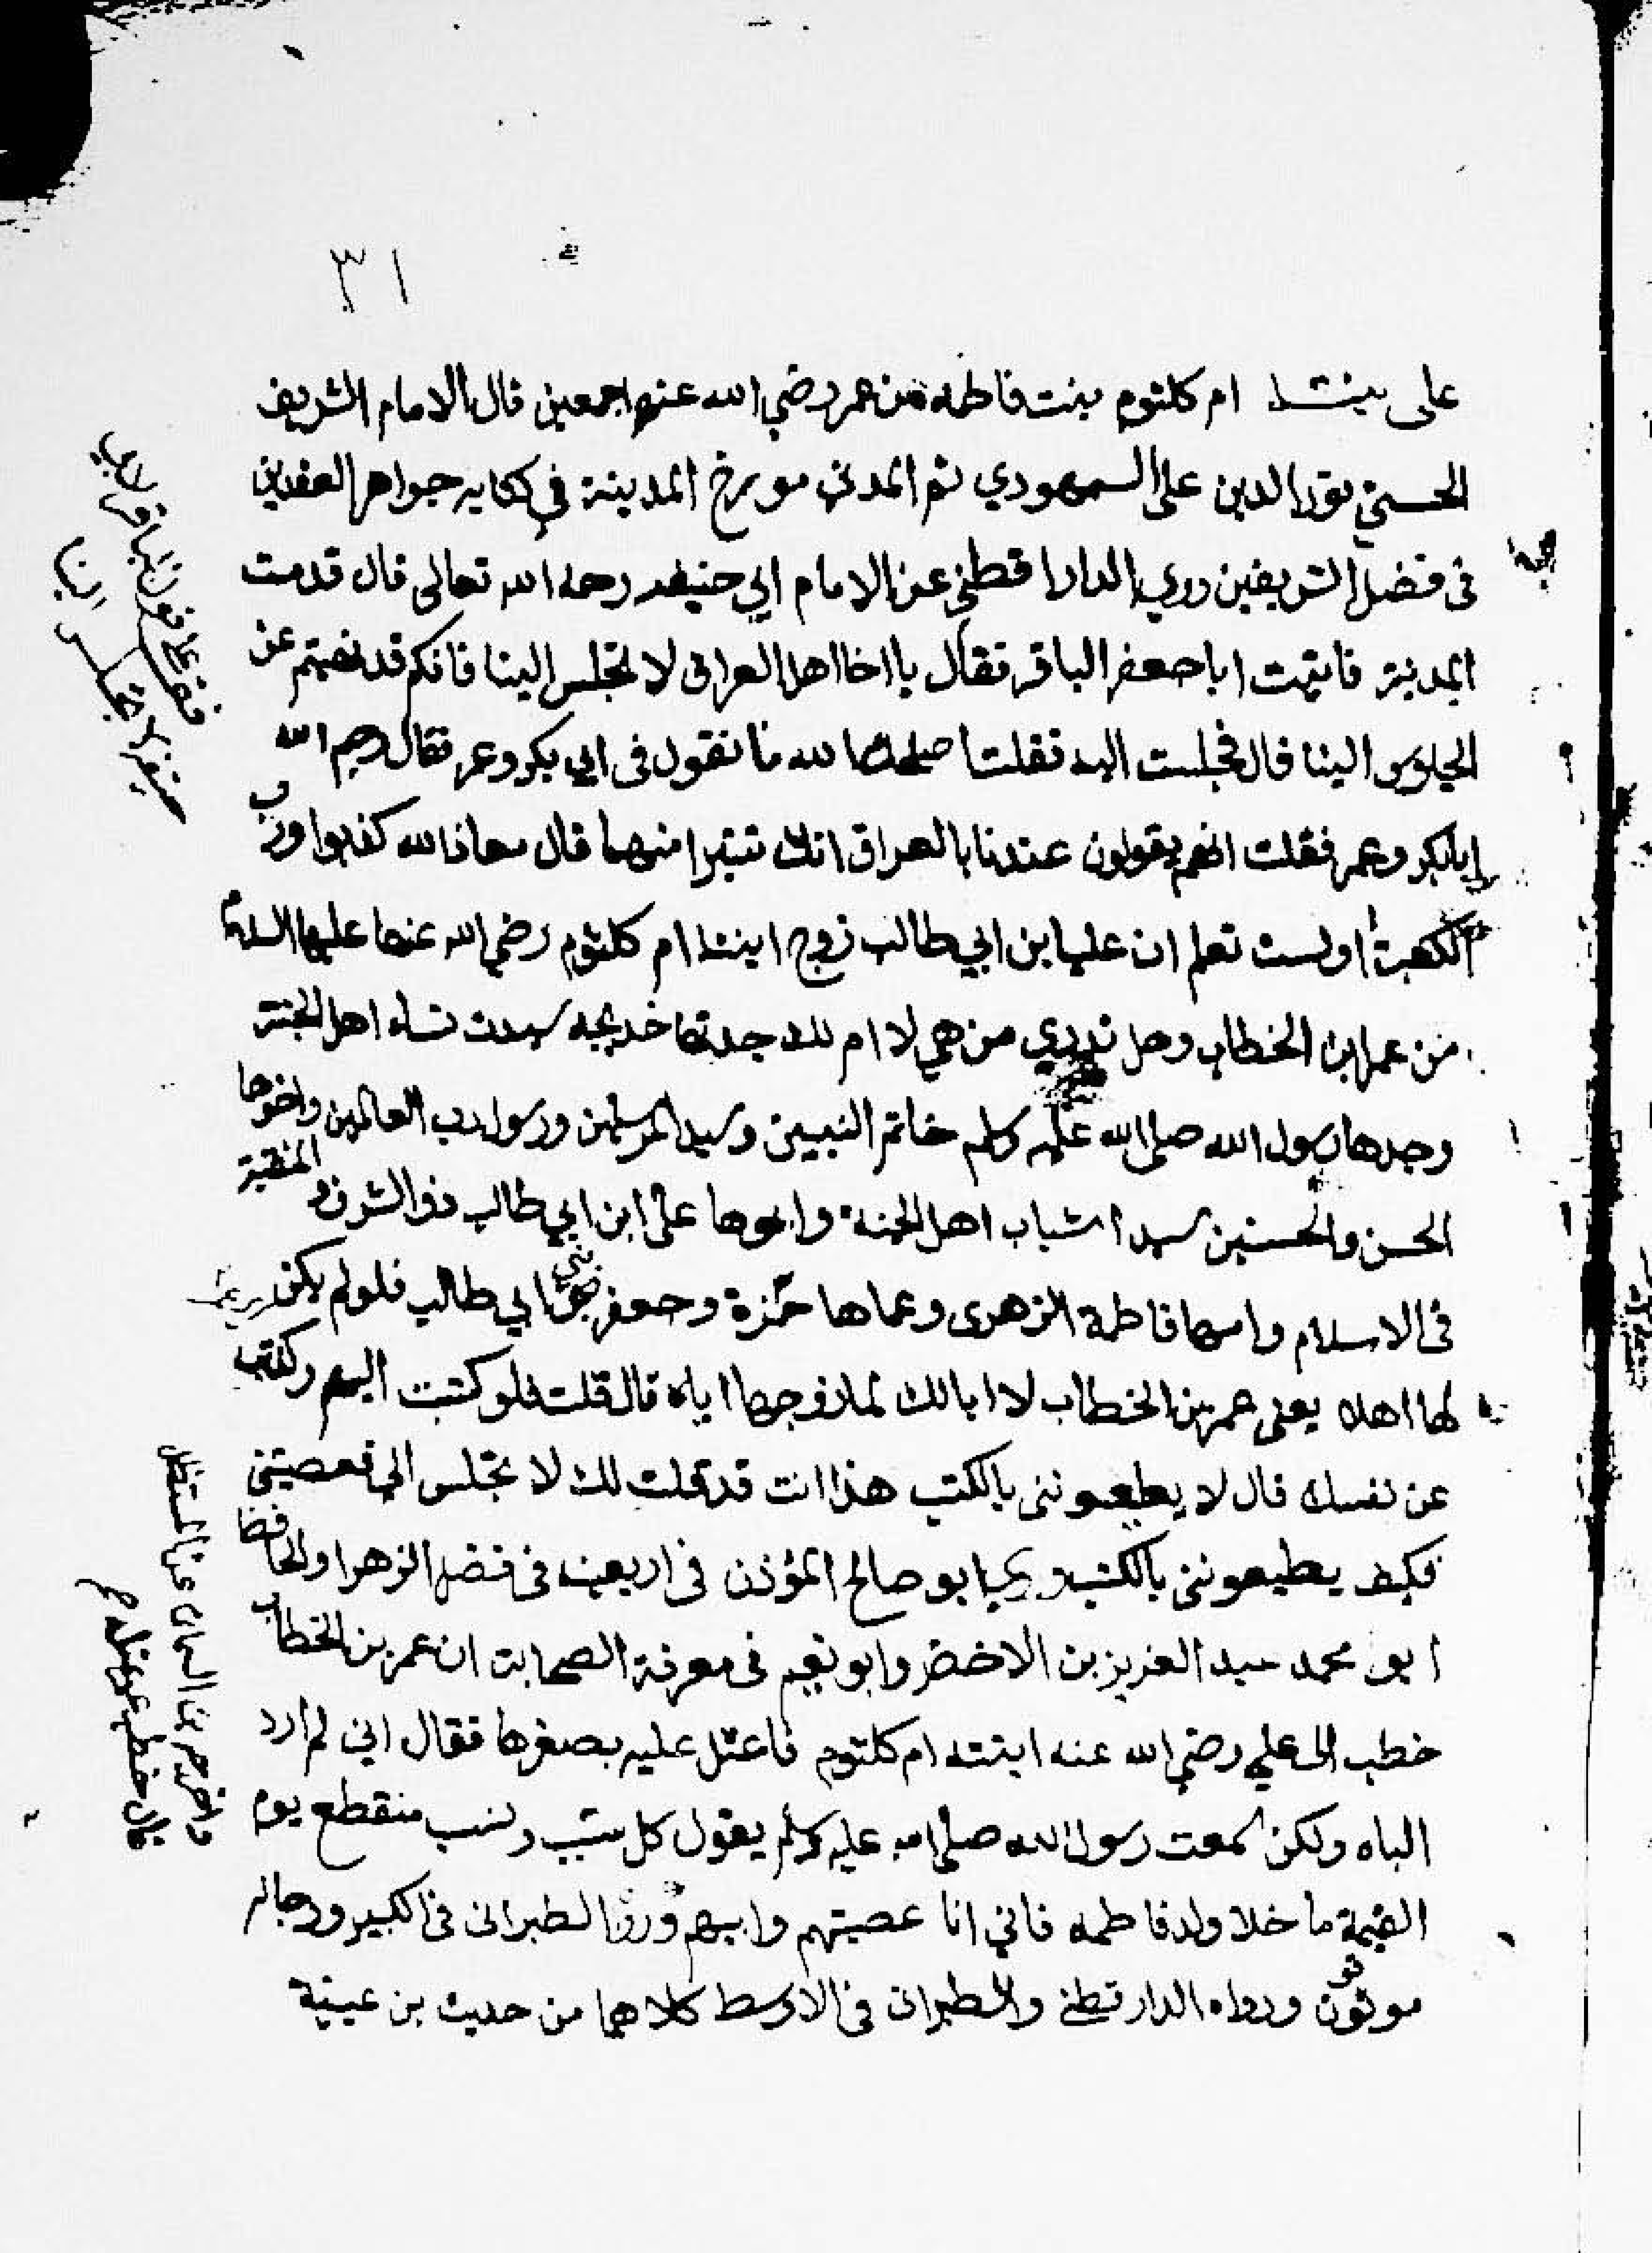 ٣١
على بينته ام كلثوم بنت فاطمه من عمر رضي الله عنهم اجمعين قال الامام الشريف
الحسني نور الدين على السمهودي ثم المدني مورخ المدينة في كتابه جواهر العقدين
فى فضل الشريفين روي الدارا قطني عن الامام ابي حنيفه رحمه الله تعالى قال قدمت
المدينة فاتيت ابا جعفر الباقر فقال يا اخا اهل العراق لا تجلس الينا فانكم قد نهيتم عن
الجلوس الينا قال فجلست اليه فقلت اصلحك الله ما تقول فى ابي بكر وعمر فقال رحم الله
ابا بكر وعمر فقلت انهم يقولون عندنا بالعراق انك تتبرا منهما قال معاذ الله كذبوا ورب
الكعبة اولست تعلم ان عليا بن ابي طالب زوج ابنته ام كلثوم رضي الله عنها عليها السلام
من عمر ابن الخطاب وهل تدري من هي لا ام لك جدتها خديجه سيدت نساء اهل الجنة
وجدها رسول الله صلى الله عليه وسلم خاتم النبيين وسيد المرسلين ورسول رب العالمين واخوها
الحسن والحسين سيدا شباب اهل الجنة وابوها على ابن ابي طالب ذو الشرف والمنقبة
فى الاسلام وامها فاطمة الزهرى وعماها حمزة وجعفر ابي طالب فلو لم يكن
لها اهلا يعنى عمر بن الخطاب لا ابا لك لما زوجها اياه قال قلت فلو كتبت اليهم وكتب
عن نفسك قال لا يطيعونى بالكتب هذا انت قد قلت لك لا تجلس الي فعصيتنى
فكيف يطيعوننى بالكتب وروي ابو صالح المؤذن فى اربعين فى فضل الزهرا والحافظ
ابو محمد عبد العزيز بن الاخضر وابو نعيم فى معرفة الصحابة ان عمر بن الخطاب
خطب الى علي رضي الله عنه ابنته ام كلثوم فاعتل عليه بصغرها فقال اني لم ارد
الباه ولكن سمعت رسول الله صلى الله عليه وسلم يقول كل سبب ونسب منقطع يوم
القيمة ما خلا ولد فاطمه فاني انا عصبتهم وابيهم ورواه الطبرانى فى الكبير ورجاله
موثقون ورواه الدارقطني والطبرانى فى الاوسط كلاهما من حديث بن عيينة